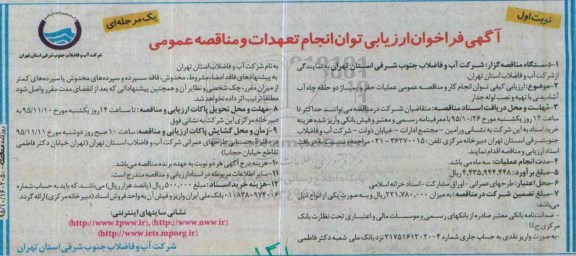 نوبت اول
یک مرحله‌ای
شرکت آب و فاضلاب جنوب شرقی استان تهران
آگهی فراخوان ارزیابی توان انجام تعهدات و مناقصه عمومی
۱-دستگاه مناقصه گزار: شرکت آب و فاضلاب جنوب شرقی استان تهران به نمایندگی
از شرکت آب و فاضلاب استان تهران.
۲-موضوع: ارزیابی کیفی / توان انجام کار و مناقصه عمومی عملیات حفر
دو حلقه چاه آب
۳-مهلت و محل دریافت اسناد مناقصه: متقاضیان شرکت در مناقصه می توانند حداکثر تا
ساعت ۱۴ روز یکشنبه مورخ ۹۵/۱۰/۲۶ با معرفینامه رسمی و معتبر و فیش بانکی واریز شده هزینه
خرید اسناد به این شرکت به نشانی ورامین - مجتمع ادارات - خیابان دولت - شرکت آب و فاضلاب
جنوب شرقی استان تهران دبیرخانه مرکزی تلفن:
۴-مدت انجام عملیات: سه ماه می باشد.
۵-مبلغ برآورد: ۴,۴۳۵,۹۴۴,۴۴۸ ریال
۶-محل اعتبار: طرحهای عمرانی - اوراق مشارکت - اسناد خزانه اسلامی
۷-مبلغ تضمین شرکت در مناقصه: به میزان ۲۲۱,۷۸۰,۰۰۰ ریال و به صورت یکی از انواع ذیل
- ضمانتنامه بانکی معتبر صادره از بانکهای رسمی و موسسات مالی و اعتباری تحت نظارت بانک
مرکزی ج.ا.ا
-به صورت واریز نقدی به حساب جاری شماره ۲۱۷۵۱۶۱۳۰۲۰۰۴ نزد بانک ملی شعبه دکتر فاطمی
به نام شرکت آب و فاضلاب استان تهران
به پیشنهادهای فاقد امضاء، مشروط، مخدوش، فاقد سپرده و سپرده های مخدوش یا سپرده های کمتر
از میزان مقرر، چک شخصی و نظایر آن و همچنین پیشنهاداتی که بعد از انقضای مدت مقرر واصل شود
مطلقا ترتیب اثر داده نخواهد شد.
۸-مهلت و محل تحویل پاکات ارزیابی و مناقصه: تا ساعت ۱۴ روز یکشنبه مورخ ۹۵/۱۱/۱۰ در
دبیرخانه مرکزی این شرکت به نشانی فوق
۹-زمان و محل گشایش پاکات ارزیابی و مناقصه: ساعت ۱۰ صبح روز دوشنبه مورخ ۹۵/۱۱/۱۱
در
عمرانی شرکت آب و فاضلاب استان تهران (تهران خیابان دکتر فاطمی
تقاطع خیابان حجاب)
۱۰-هزینه درج آگهی هر دو نوبت به عهده برنده مناقصه می باشد.
۱۱-سایر اطلاعات مربوطه در اسناد ارزیابی و مناقصه مندرج است.
۱۲-هزینه خرید اسناد: مبلغ ۵۰۰,۰۰۰ ریال (پانصد هزار ریال) می باشد، که باید به حساب شماره
بانک ملی ایران واریز و فیش آن به واحد فروش اسناد (دبیرخانه مرکزی) ارائه گردد.
نشانی سایتهای اینترنتی:
(http://www.tpww.ir), (http://www.nww.ir)
(http://www.iets.mporg.ir)
شرکت آب و فاضلاب جنوب شرقی استان تهران